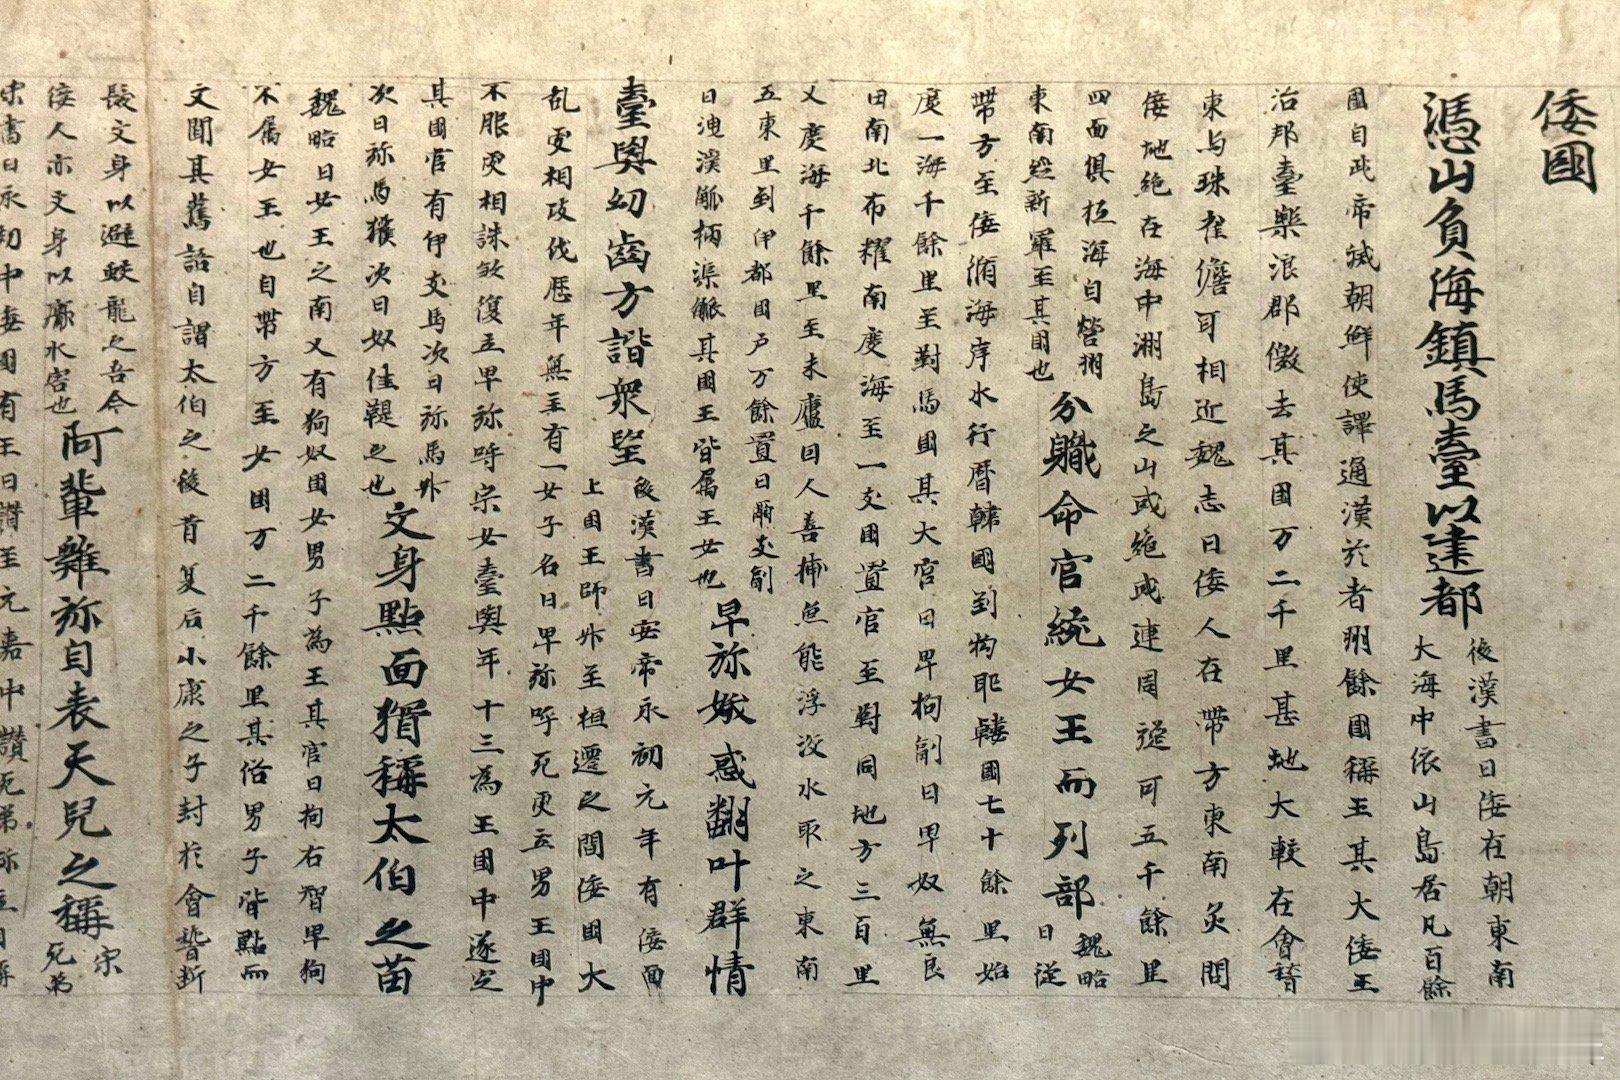 倭國
憑山負海鎮馬臺以建都
後漢書曰倭在朝東南
大海中依山島居凡百餘
國自武帝滅朝鮮使譯通漢於者卅餘國稱王其大倭王
治邦臺樂浪郡儌去其國万二千里甚地大較在會稽
東与珠雀儋耳相近魏志曰倭人在帶方東南炙問
倭地絶在海中洲島之山或絶或連周遊可五千餘里
四面俱抵海自營州
東南經新羅至其國也
分軄命官統女王而列部
魏略
曰從
帶方至倭循海岸水行暦韓國到拘耶韓國七十餘里始
度一海千餘里至對馬國其大官曰卑拘副曰卑奴無良
田南北布糴南度海至一支國置官至對同地方三百里
又度海千餘里至末盧國人善捕魚能浮没水取之東南
五東里到伊都國户万餘置曰爾支副
曰洩溪觚柄渠觚其國王皆属王女也
卑弥娥惑翻叶群情
臺與幼齒方諧衆望
後漢書曰安帝永初元年有倭面
上國王師升至桓遷之間倭國大
乱更相攻伐歷年無主有一女子名曰卑弥呼死更立男王國中
不服更相誅敘復立卑弥呼宗女臺與年十三為王國中遂定
其國官有伊支馬次曰弥馬升
次曰弥馬獲次曰奴佳鞮之也
文身點面猶稱太伯之苗
魏略曰女王之南又有狗奴國女男子為王其官曰拘右智卑狗
不属女王也自帶方至女國万二千餘里其俗男子皆點而
文聞其舊語自謂太伯之後昔夏后小康之子封於會稽断
髮文身以避蛟龍之吾今
倭人亦文身以厭水害也
阿輩雞弥自表天兒之稱
宋
死弟
宋書曰永初中倭國有王曰讃至元嘉中讃死弟弥立自稱